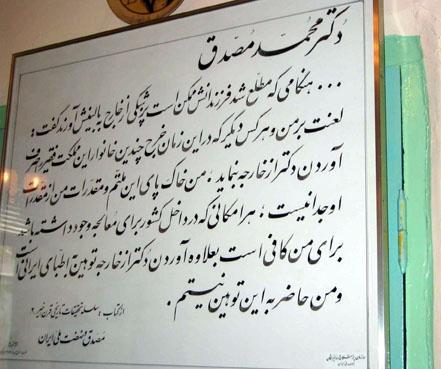 دکتر محمد مصدق
... هنگامی که مطلع شد فرزندانش ممکن است پزشکی از خارج به بالینش آورند گفت:
لعنت بر من و هر کس دیگر که در این زمان خرج چندین خانوار این مملکت فقیر صرف
آوردن دکتر از خارجه نماید، من خاک پای این ملتم و مقدرات من از مقدرات
او جدا نیست، هر امکانی که در داخل کشور برای معالجه وجود داشته باشد
برای من کافی است بعلاوه آوردن دکتر از خارجه توهین به اطبای ایرانی است
و من حاضر به این توهین نیستم.
از کتاب: سلسله تحقیقات تاریخی قرن اخیر
مصدق و نهضت ملی ایران